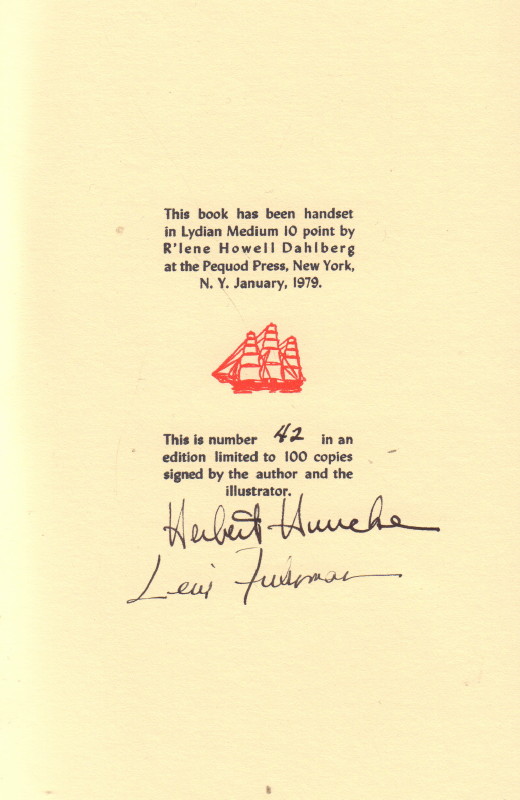 This book has been handset
in Lydian Medium 10 point by
R'lene Howell Dahlberg
at the Pequod Press, New York,
N. Y. January, 1979.
This is number 42 in an
edition limited to 100 copies
signed by the author and the
illustrator.
Herbert Huncke